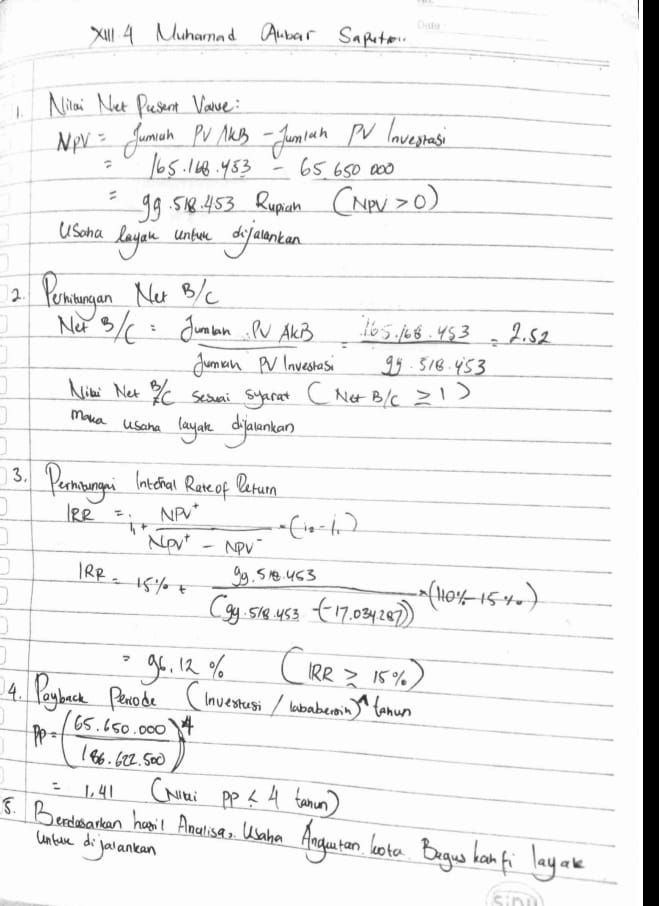 XIII.4 Muhamad Aubar Saputra..
Date:
1. Nilai Net Present Value:
NPV = Jumlah PV AKB - Jumlah PV Investasi
= 165.168.453 - 65.650 000
= 99.518.453 Rupiah (NPV > 0)
Usaha layak untuk dijalankan
2. Perhitungan Net B/C
Net B/C = Jumlah PV AKB / Jumlah PV Investasi = 165.168.453 / 99.518.453 = 2.52
Nilai Net B/C sesuai syarat (Net B/C ≥ 1)
maka usaha layak dijalankan
3. Perhitungan Internal Rate of Return
IRR = i₁ + NPV⁺ / NPV⁺ - NPV⁻ × (i₂ - i₁)
IRR = 15% + 99.518.453 / (99.518.453 - (-17.034.287)) × (110% - 15%)
= 96,12 % (IRR ≥ 15%)
4. Payback Periode (Investasi / lababersih)^ tahun
PP = (65.650.000 / 186.622.500) 4
= 1,41 (Nilai PP < 4 tahun)
5. Berdasarkan hasil Analisa, Usaha Angkutan kota Bagus kanfi layak
untuk dijalankan
SiDU